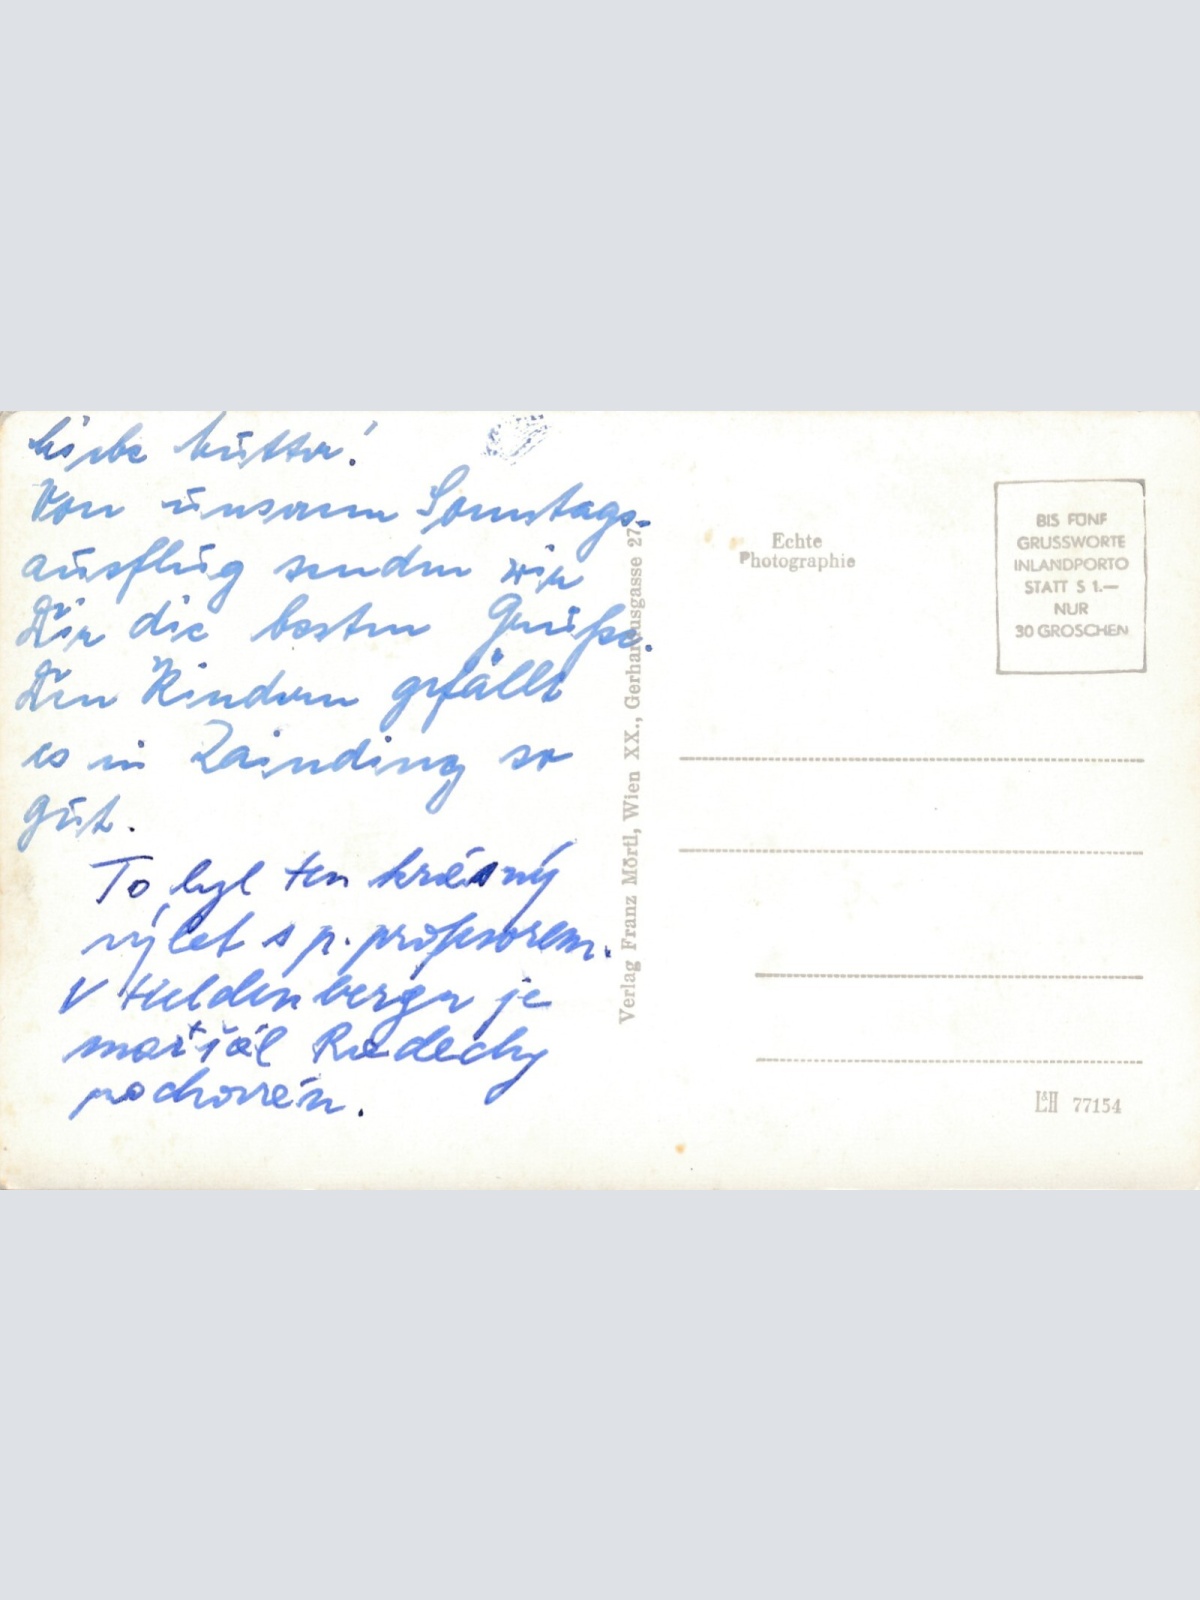 Liebe Mutter!
Von unserem Sonntags-
ausflug senden wir
Dir die besten Grüße.
Den Kindern gefällt
es in Zainding so
gut.
To byl ten krásný
výlet s p. profesorem.
V Heldenbergu je
maršál Radecky
pochován.
Verlag Franz Mörtl, Wien XX., Gerhardusgasse 27
Echte
Photographie
BIS FÜNF
GRUSSWORTE
INLANDPORTO
STATT S 1.—
NUR
30 GROSCHEN
L&H 77154